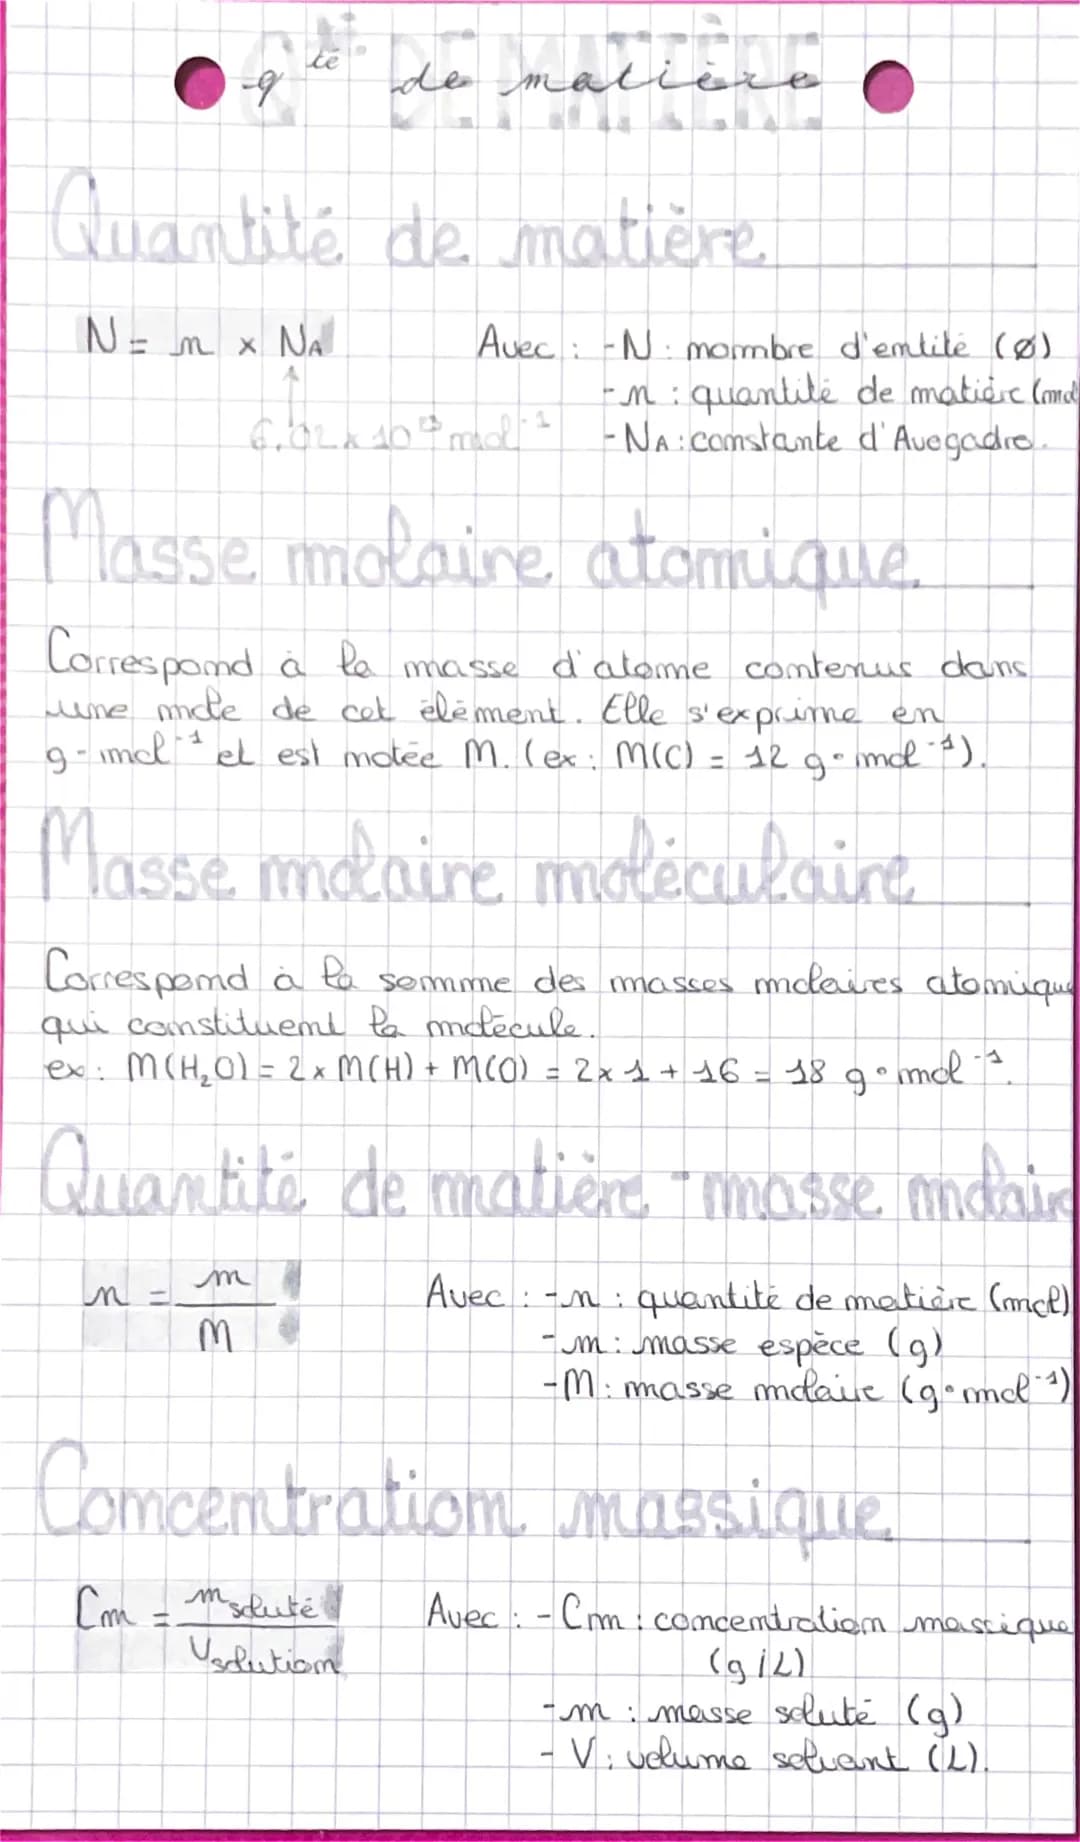 qté de matière
Quantité de matière
N = n x NA
6,02 x 10²³ mol⁻¹
Avec : - N : nombre d'entité (ø)
- n : quantité de matière (mol
- NA : constante d'Avegadro.
Masse molaire atomique
Correspond à la masse d'atome contenus dans
une mole de cet élément. Elle s'exprime en
g·mol⁻¹ et est notée M. (ex : M(C) = 12 g·mol⁻¹).
Masse molaire moléculaire
Correspond à la somme des masses molaires atomique
qui constituent la molécule.
ex : M(H₂O) = 2 x M(H) + M(O) = 2 x 1 + 16 = 18 g·mol⁻¹.
Quantité de matière - masse molaire
n = m / M
Avec : - n : quantité de matière (mol)
- m : masse espèce (g)
- M : masse molaire (g·mol⁻¹)
Concentration massique
Cm = m soluté / V solution
Avec : - Cm : concentration massique
(g/L)
- m : masse soluté (g)
- V : volume solvant (L).